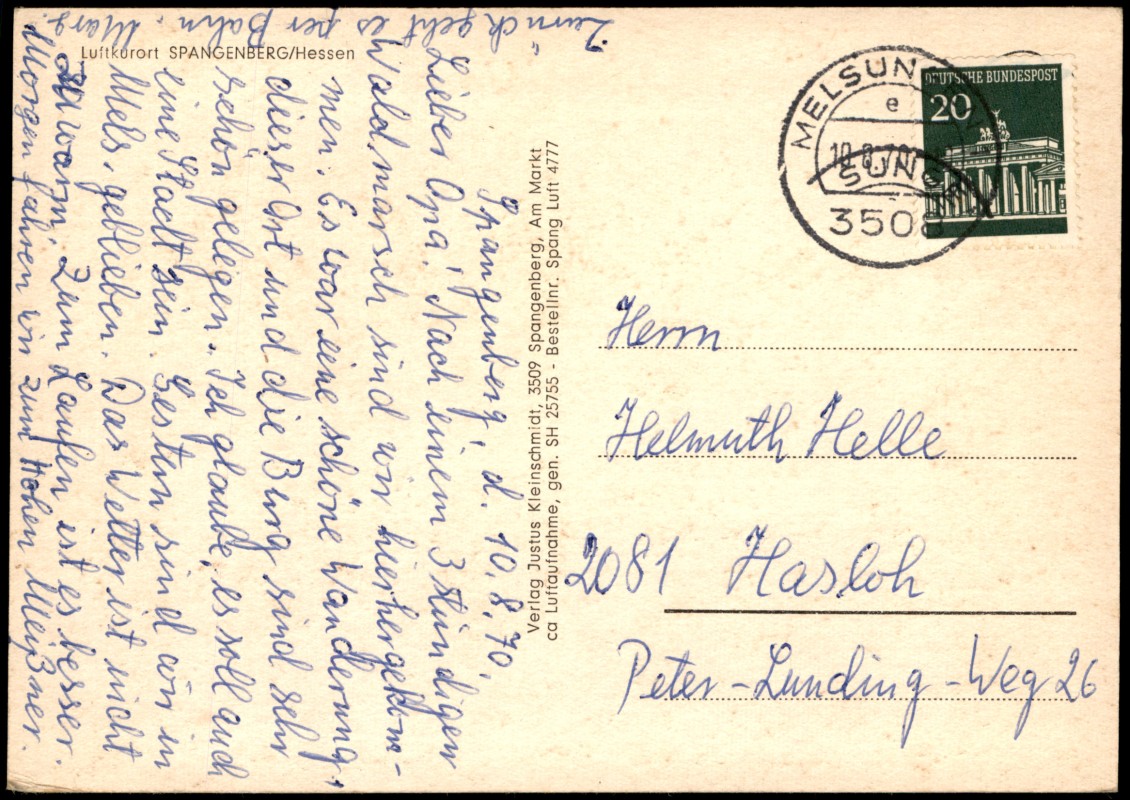 Luftkurort SPANGENBERG/Hessen
Spangenberg, d. 10.8.70.
Lieber Opa! Nach einem 3 stündigen
Waldmarsch sind wir hierhergekom-
men. Es war eine schöne Wanderung,
dieser Ort und die Burg sind sehr
schön gelegen. Ich glaube, es soll auch
eine Stadt sein. Gestern sind wir in
Mels. geblieben. Das Wetter ist nicht
zu warm. Zum Laufen ist es besser.
Morgen fahren wir zum Hohen Meißner.
Zurück geht es per Bahn. Marg.
Verlag Justus Kleinschmidt, 3509 Spangenberg, Am Markt
ca Luftaufnahme, gen. SH 25755 - Bestellnr. Spang Luft 4777
MELSUNGEN
e
10.8.70
SUNG
3508
DEUTSCHE BUNDESPOST
20
Herrn
Helmuth Helle
2081 Hasloh
Peter-Lunding-Weg 26